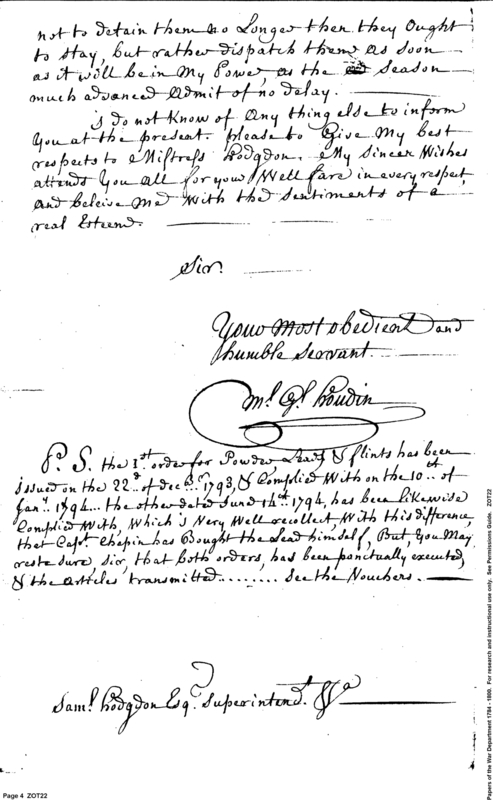 not to detain them no Longer then they Ought
to stay, but rather dispatch them as soon
as it will be in My Power, as the Season
much advanced Admit of no delay.
I do not Know of Any thing else to inform
You at the present. please to Give My best
respects to Mistress Hodgdon. My Sincer Wishes
attends You all for your Well fare in every respect,
and beleive Me With the Sentiments of a
real Esteem.
Sir.
Your most obedient and
humble Servant.
Ml. Gl. Houdin
P. S. the 1.st order for Powder, Lead, & flints has been
issued on the 22.d of decb.r 1793, & Complied With on the 10.th of
Jany. 1794 ... the other dated June 14.th 1794, has been likewise
Complied With, Which i's Very Well recollect, With this difference,
that Capt. Chapin has Bought the Lead himself, But, You May
rest sure, Sir, that both orders, has been punctually executed,
& the articles transmitted ........ See the Vouchers.
Saml. Hodgdon Esq.r Superintend.t &a
Page 4 ZOT22
Papers of the War Department 1784 - 1800. For research and instructional use only. See Permissions Guide. ZOT22